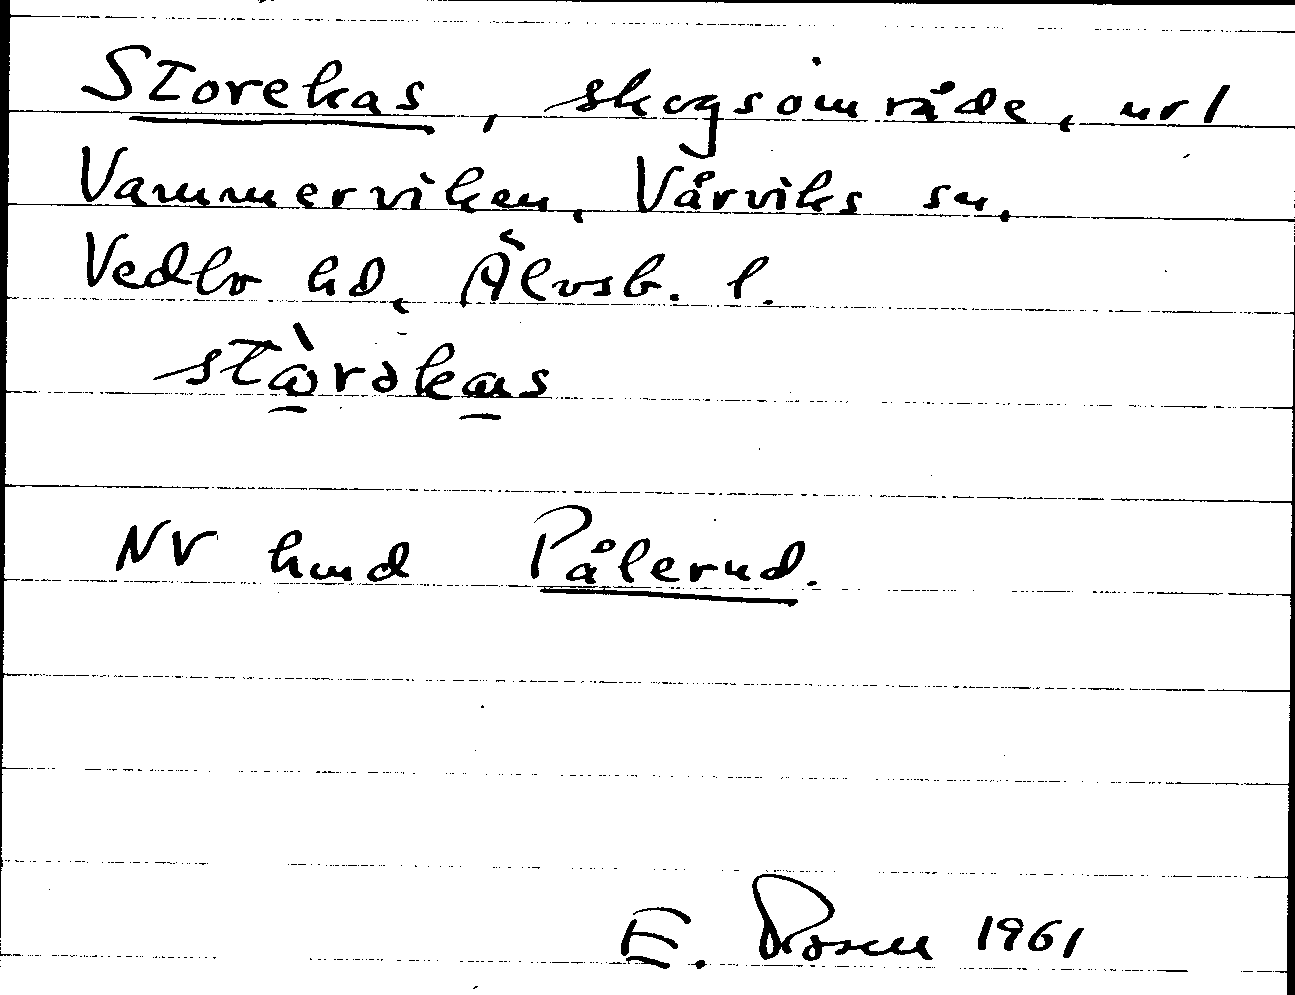 Storekas, skogsområde, nr 1
Vammerviken, Vårviks sn,
Vedbo hd, Älvsb. l.
NV hmd Pålerud.
E. Rosen 1961